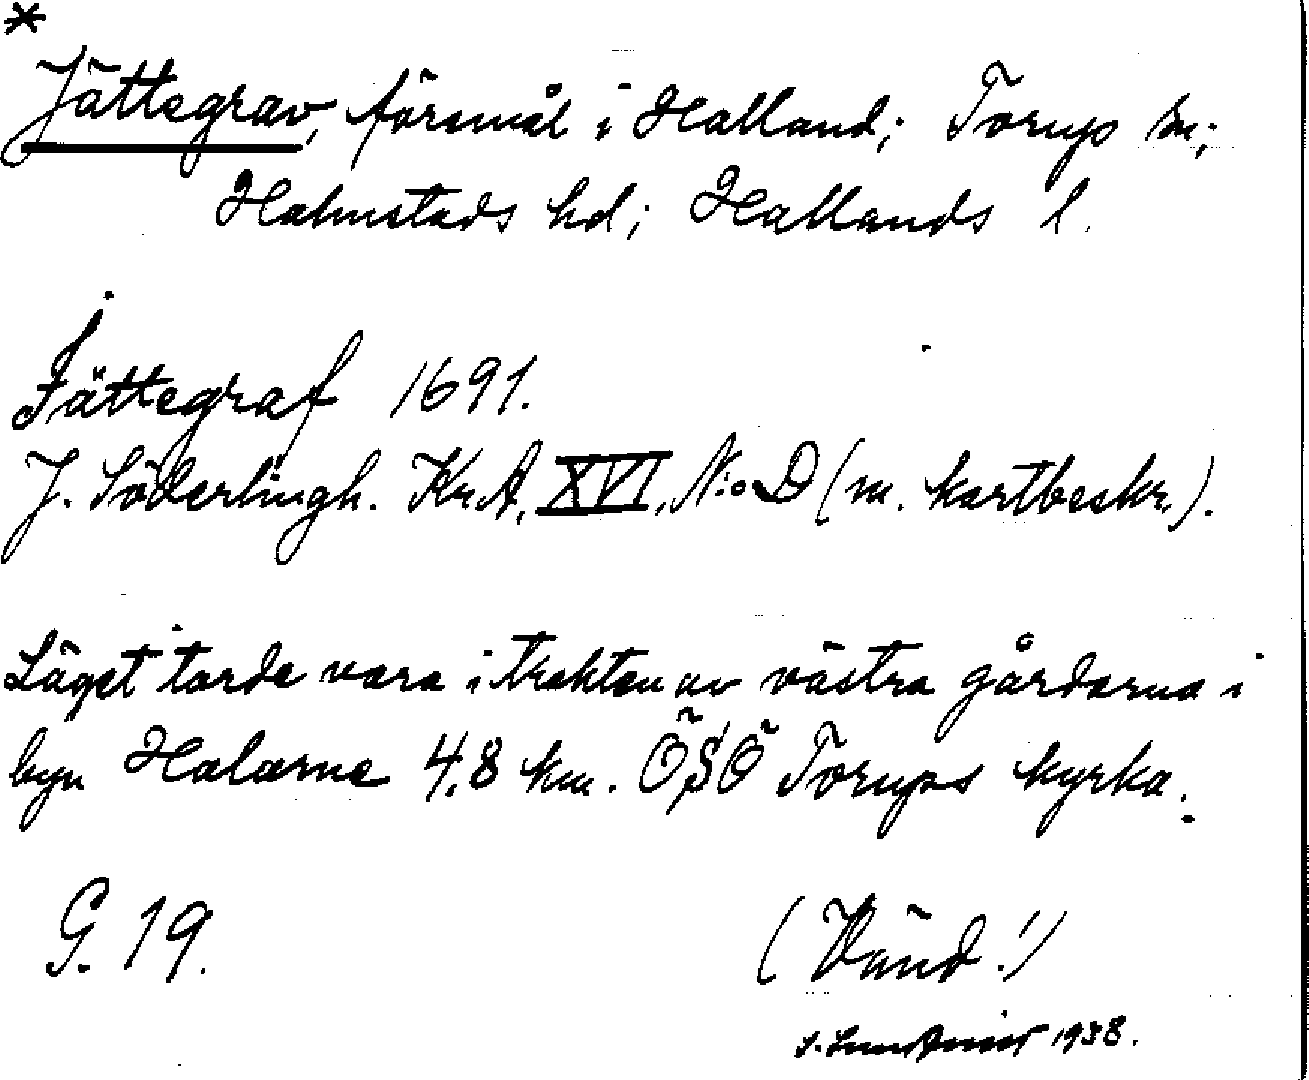 *
Jättegrav,försmål i Halland; Torups sn;
Halmstads hd; Hallands l.
Jättegraf 1691.
J. Söderlingh. Kr.A. XVI, N:o D (m. kartbeskr.).
Läget torde vara i trakten av västra gårdarna i
byn Halarne 4,8 km. ÖSÖ Torups kyrka.
G. 19.
(Vänd!)
1938.